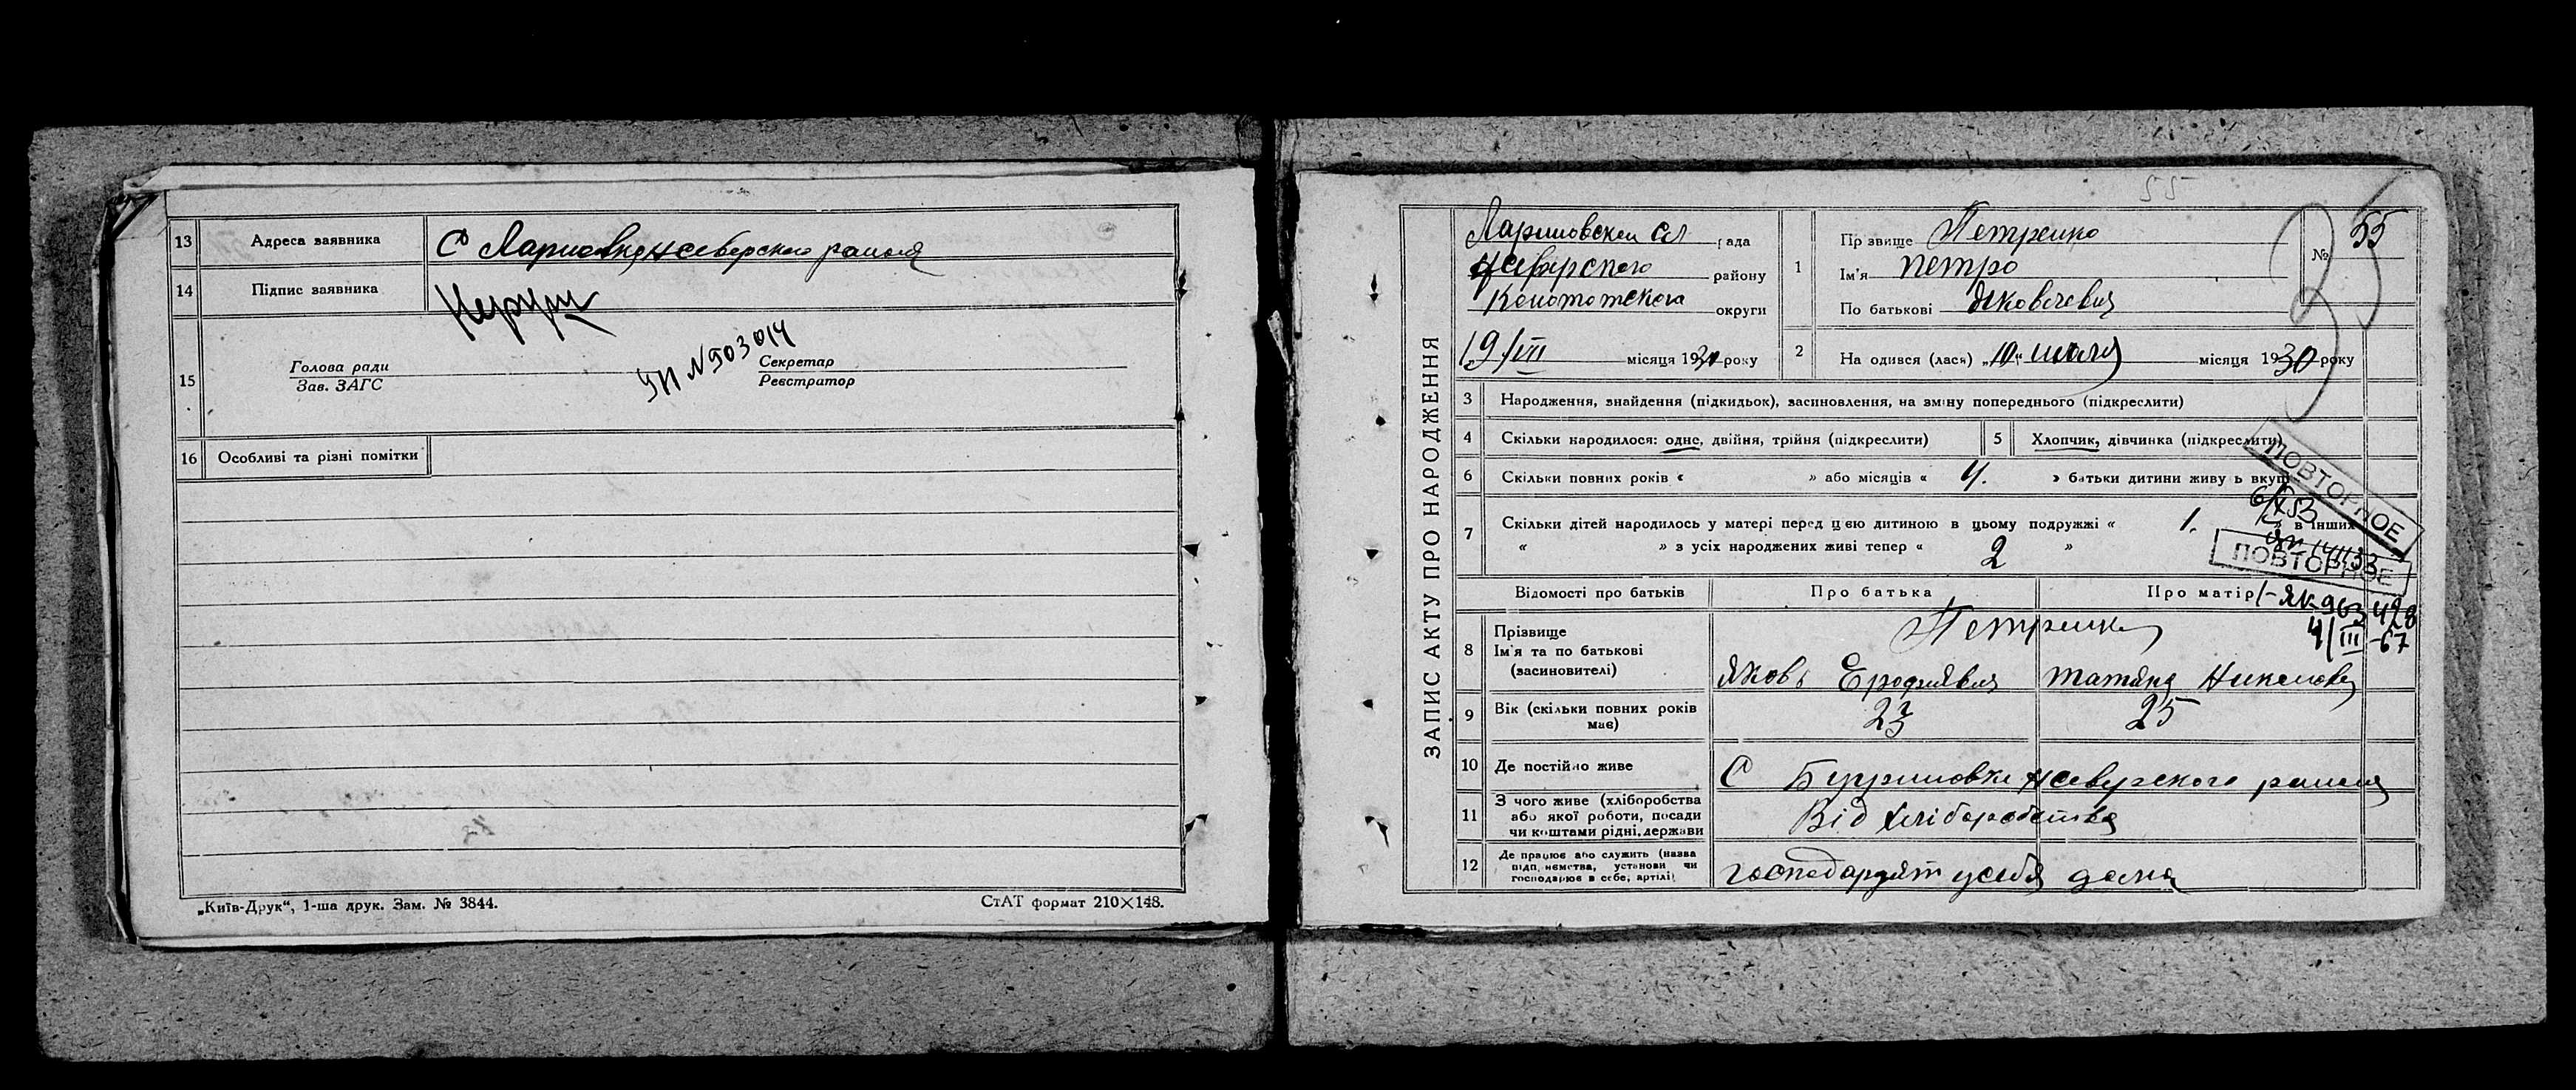 13 Адреса заявника С Лариовка нсеверского района
14 Підпис заявника
15 Голова ради
Зав. ЗАГС
Секретар
Реєстратор
УП №903014
16 Особливі та різні помітки
„Київ-Друк“, 1-ша друк. Зам. № 3844.
СтАТ формат 210×148.
55
ЗАПИС АКТУ ПРО НАРОДЖЕННЯ
рада
нсеверского району
Конотопского округи
19/VII місяця 1930 року
1 Прізвище Петренко
Ім'я Петро
По батькові Яковлевич
№ 55
2 На одився (лася) „10“ июля місяця 1930 року
3 Народження, знайдення (підкидьок), засиновлення, на зміну попереднього (підкреслити)
4 Скільки народилося: одне, двійня, трійня (підкреслити)
5 Хлопчик, дівчинка (підкреслити)
6 Скільки повних років « » або місяців « 4. » батьки дитини живу ь вкупі
7 Скільки дітей народилось у матері перед цією дитиною в цьому подружжі « 1. » в інших
« » з усіх народжених живі тепер « 2 »
ПОВТОРНОЕ
ПОВТОРНОЕ
Відомості про батьків
Про батька
Про матір
963428
4/III-67
8 Прізвище
Ім'я та по батькові
(засиновителі)
Петренко
Яковъ
Татяна
9 Вік (скільки повних років має) 23 25
10 Де постійно живе С нсеверского района
11 З чого живе (хліборобства або якої роботи, посади чи коштами рідні, держави
Від хліборобства
12 Де працює або служить (назва підп иємства, установи чи господарює в себе, артілі)
господарят у себя дома